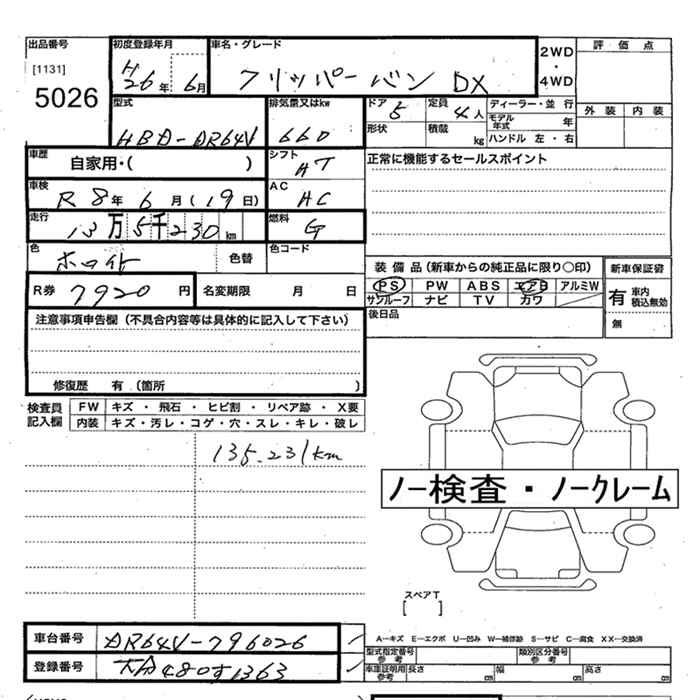 出品番号 初度登録年月 車名・グレード 2WD・4WD 評価点
[1131] 5026 H26年 6月 クリッパーバン DX
型式 排気量又はkw ドア 5 定員 4人 ディーラー・並行 外装 内装
HBD-DR64V 660 形状 積載 kg モデル年式 年 ハンドル 左・右
車歴 自家用・( ) シフト AT 正常に機能するセールスポイント
車検 R8年 6月(19日) AC AC
走行 13万5千230km 燃料 G
色 ホワイト 色替 色コード 装備品(新車からの純正品に限り○印) 新車保証書
R券 7920円 名変期限 月 日 PS PW ABS エアB アルミW 有 車内 積込無効
サンルーフ ナビ TV カワ
注意事項申告欄(不具合内容等は具体的に記入して下さい) 後日品 無
修復歴 有(箇所 )
検査員記入欄 FW キズ・飛石・ヒビ割・リペア跡・X要
内装 キズ・汚レ・コゲ・穴・スレ・キレ・破レ
135.231km
ノー検査・ノークレーム
スペアT
[ ]
車台番号 DR64V-796026 A―キズ E―エクボ U―凹み W―補修跡 S―サビ C―腐食 XX―交換済
型式指定番号 参考 類別区分番号 参考
登録番号 大分480す1363 車庫証明用参考 長さ cm 幅 cm 高さ cm